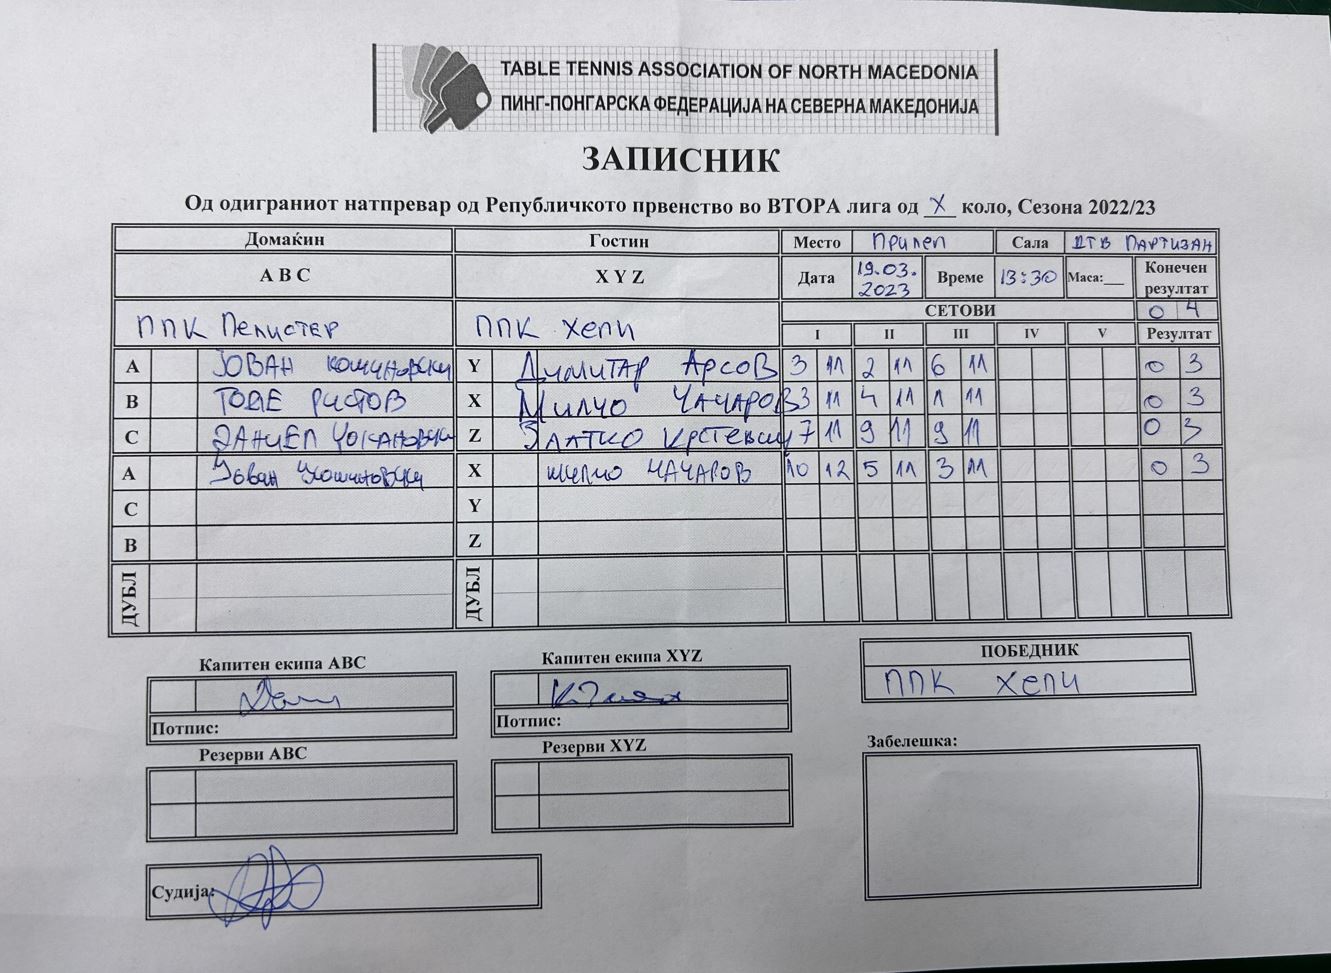 TABLE TENNIS ASSOCIATION OF NORTH MACEDONIA
ПИНГ-ПОНГАРСКА ФЕДЕРАЦИЈА НА СЕВЕРНА МАКЕДОНИЈА
ЗАПИСНИК
Од одиграниот натпревар од Републичкото првенство во ВТОРА лига од X коло, Сезона 2022/23
Домаќин Гостин Место Прилеп Сала ДТВ ПАРТИЗАН
A B C X Y Z Дата 19.03.2023 Време 13:30 Маса:___ Конечен резултат
ППК Пелистер ППК Хепи СЕТОВИ 0 4
I II III IV V Резултат
A ЈОВАН Кошиновски Y Димитар Арсов 3 11 2 11 6 11 0 3
B ТОДЕ РИСТОВ X Милчо ЧАЧАРОВ 3 11 4 11 1 11 0 3
C ДАНИЕЛ Z Златко Крстевски 7 11 9 11 9 11 0 3
A Јован Кошиновски X Милчо ЧАЧАРОВ 10 12 5 11 3 11 0 3
C Y
B Z
ДУБЛ ДУБЛ
Капитен екипа ABC Капитен екипа XYZ ПОБЕДНИК
ППК Хепи
Потпис: Потпис:
Резерви ABC Резерви XYZ Забелешка:
Судија: